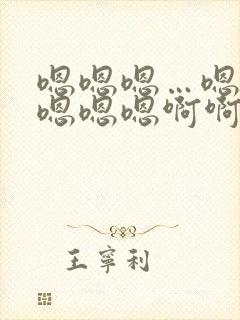 嗯嗯嗯…嗯
嗯嗯嗯啊啊
王寧利